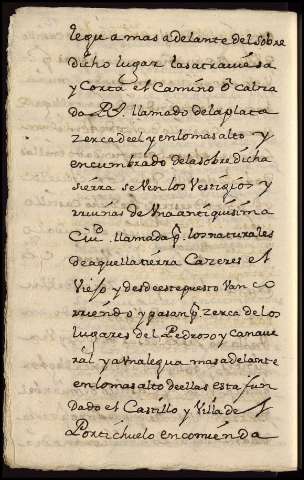 legua mas adelante del sobre
dicho lugar las atrauiesa
y corta el Camino o Calça
da Rl. llamado de la plata
zerca de el y en lo mas alto y
encumbrado de la sobre dicha
sierra se ven los Vestigios y
rruinas de Vna antiquisima
Ciud. llamada pr. los naturales
de aquella tierra Cazeres el
Viejo y desde este puesto van co
rriendo y pasan pr. zerca de los
lugares del Pedroso y Canaue
ral y a Vna legua mas adelante
en lo mas alto de ellas esta fun
dado el Castillo y Villa de el
Portichuelo encomienda